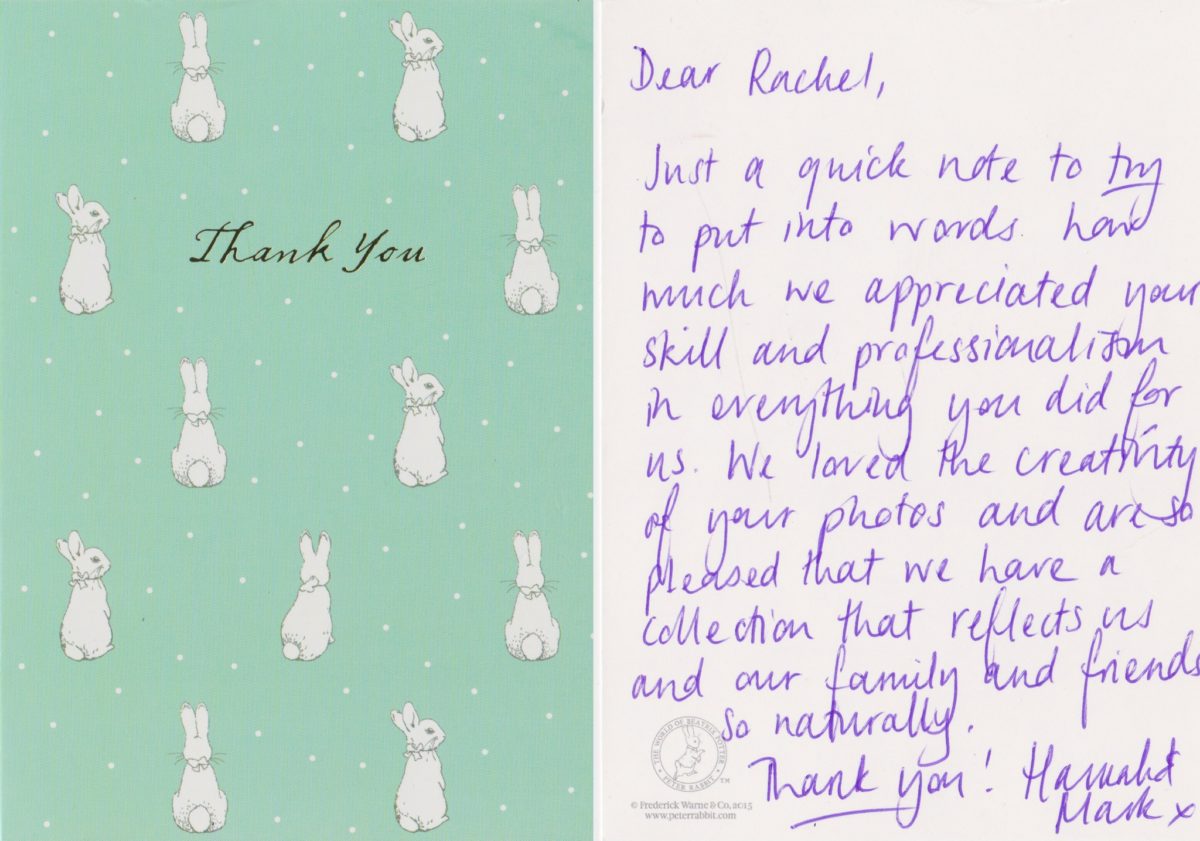 Thank You
Dear Rachel,
Just a quick note to try
to put into words how
much we appreciated your
skill and professionalism
in everything you did for
us. We loved the creativity
of your photos and are so
pleased that we have a
collection that reflects us
and our family and friends
so naturally.
Thank you! Hannah &
Mark x
THE WORLD OF BEATRIX POTTER
PETER RABBIT
TM
© Frederick Warne & Co, 2015
www.peterrabbit.com